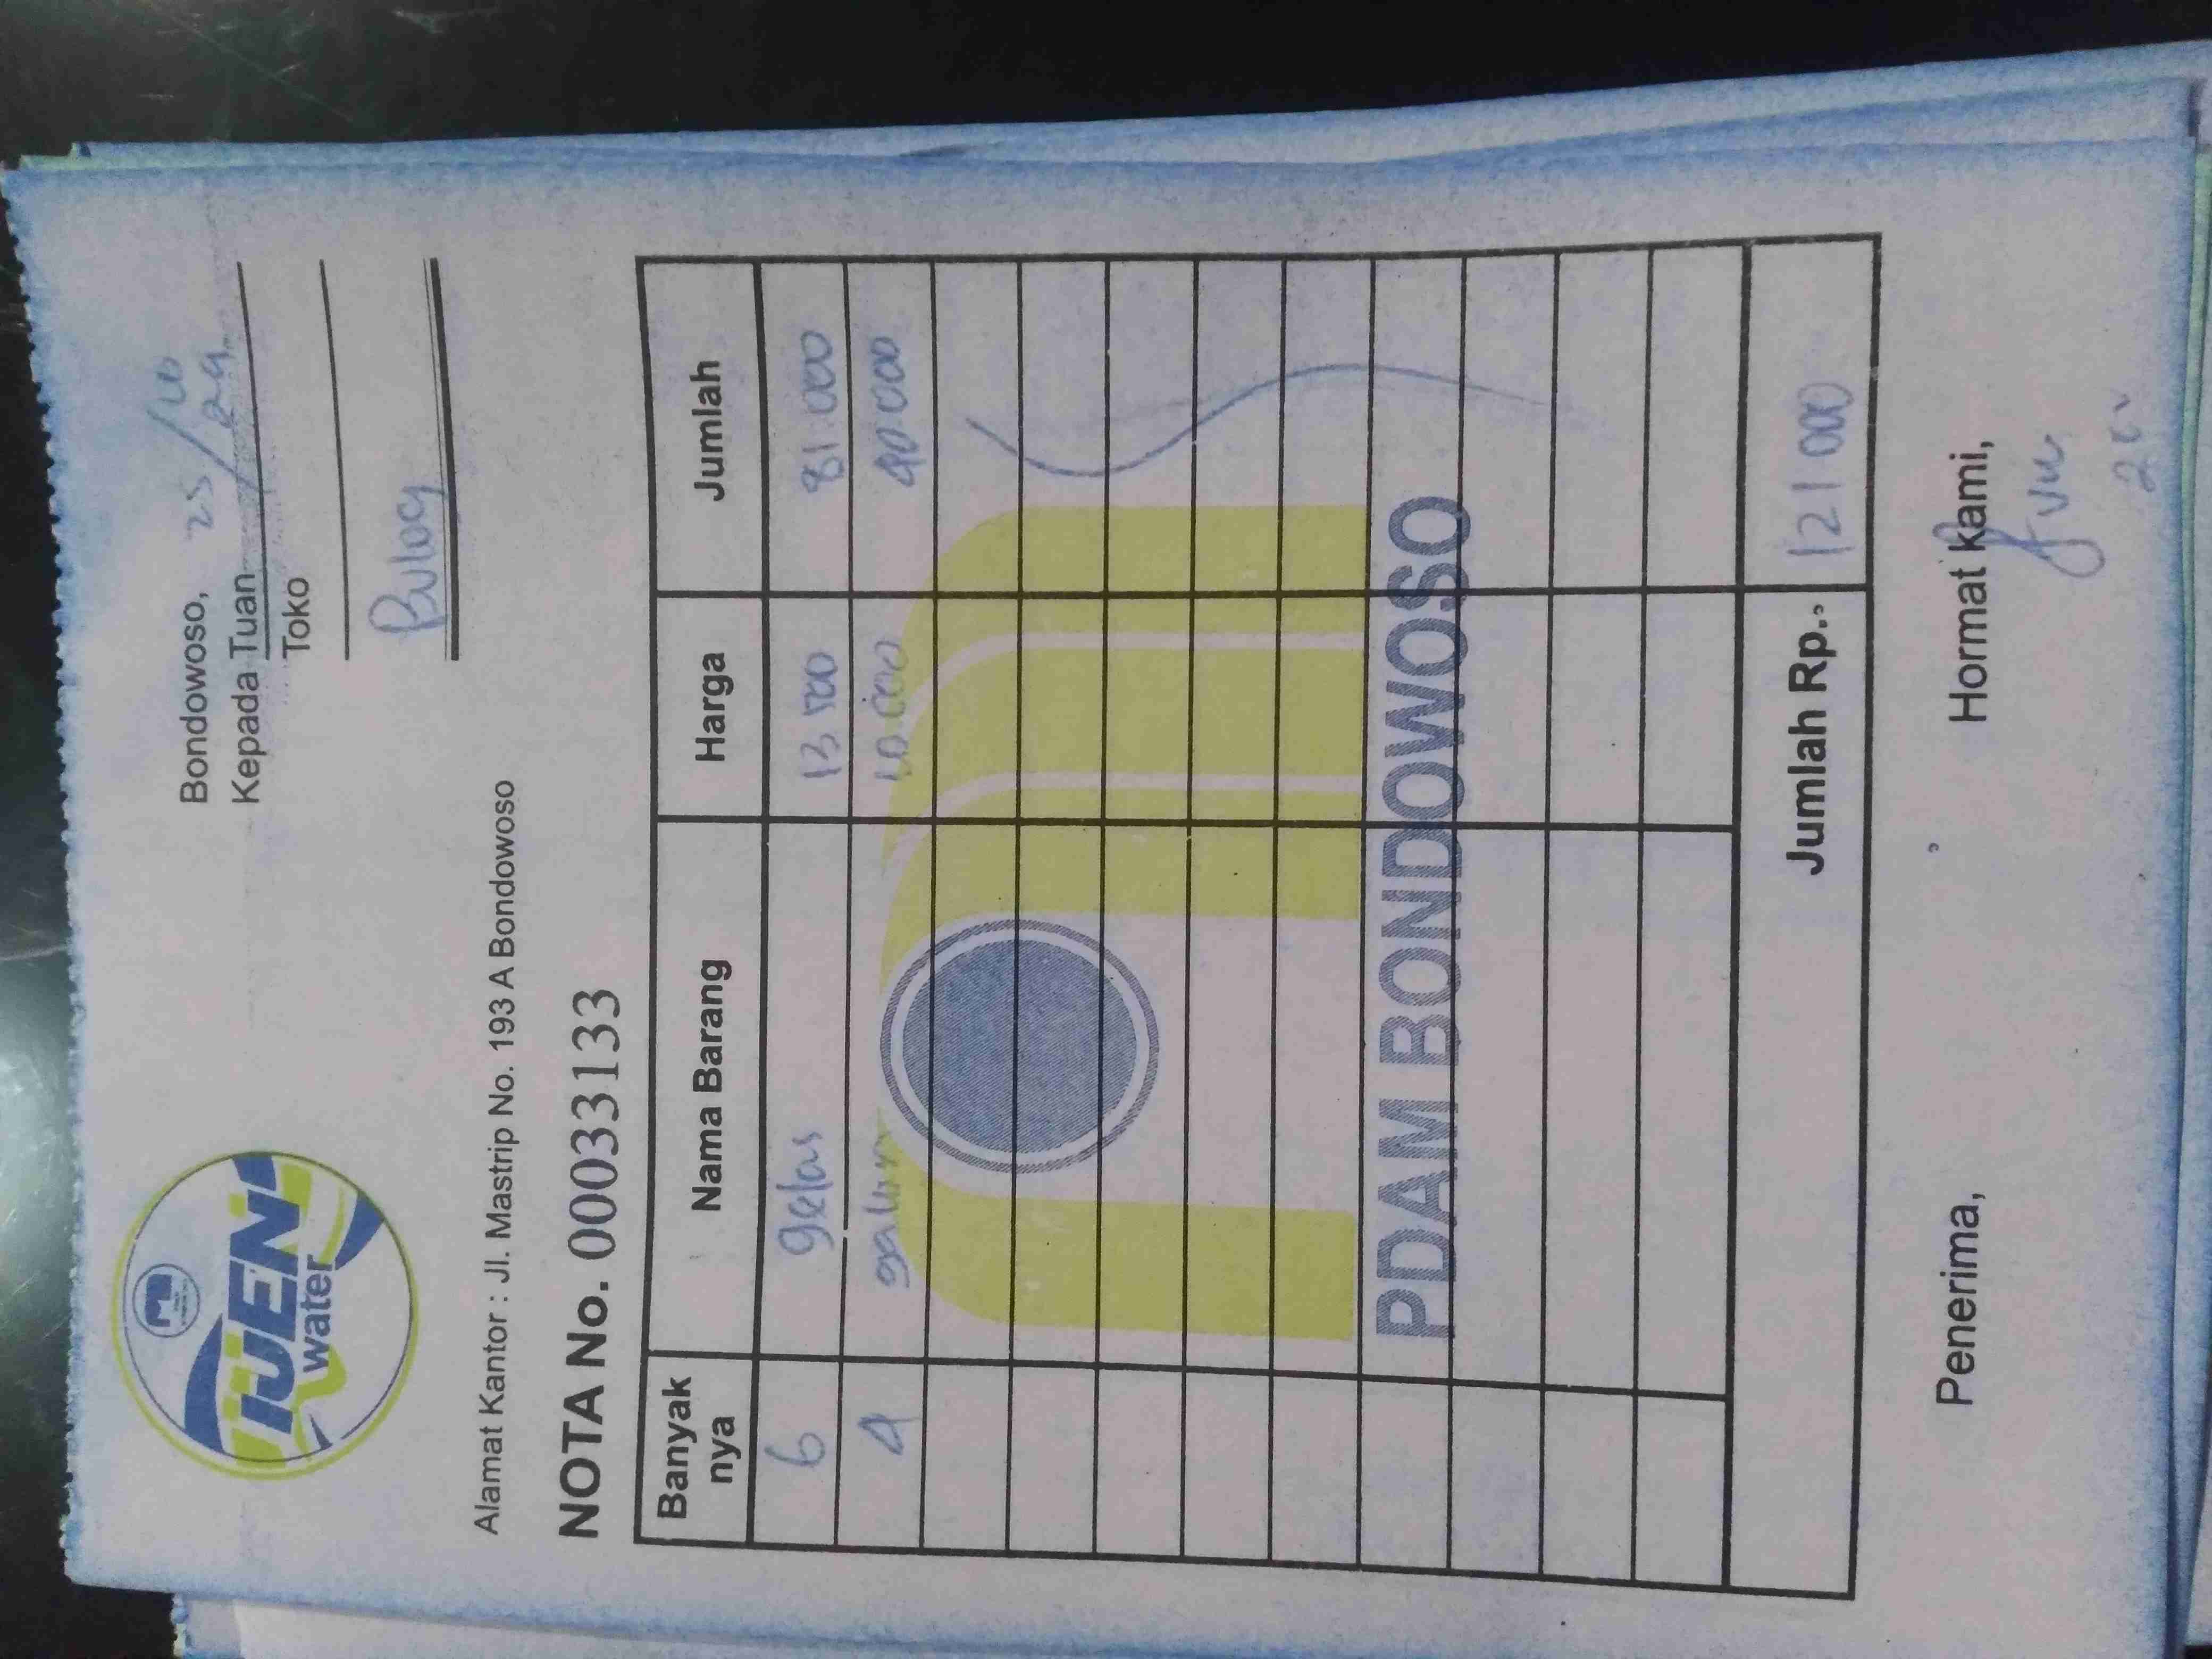 IJEN
water
Bondowoso, 25/10
24
Kepada Tuan
Toko
Bulog
Alamat Kantor : Jl. Mastrip No. 193 A Bondowoso
NOTA No. 00033133
Banyak nya Nama Barang Harga Jumlah
6 gelas 13 500 81.000
4 galon 10.000 40.000
PDAM BONDOWOSO
Jumlah Rp.. 121 000
Penerima, Hormat kami,